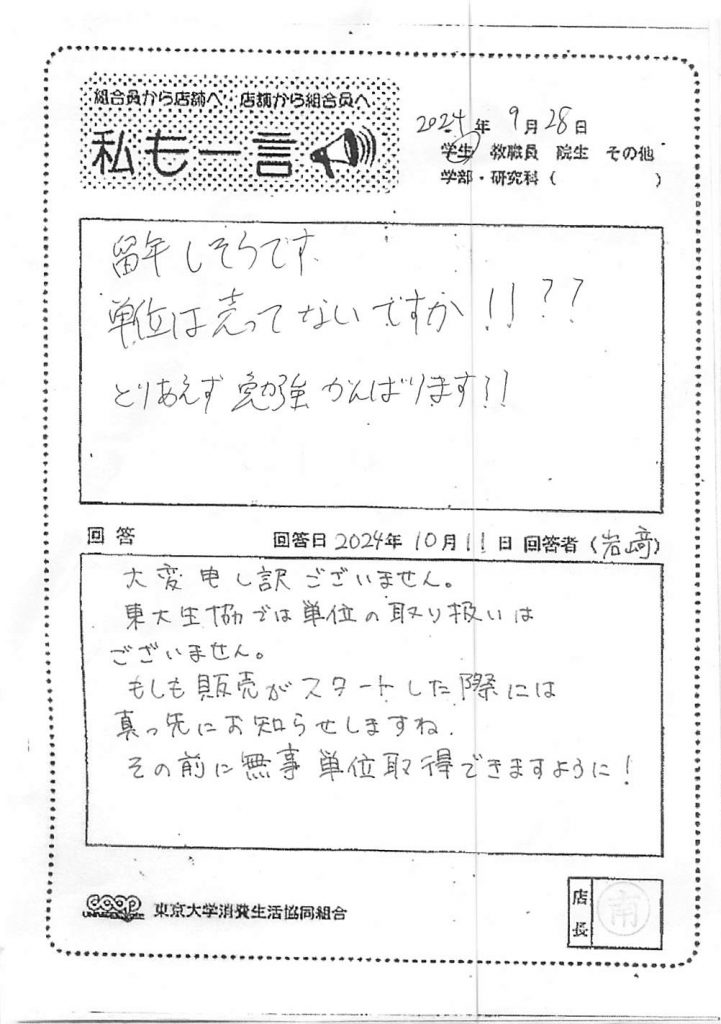 組合員から店舗へ 店舗から組合員へ
私も一言
2024年 9月28日
学生 教職員 院生 その他
学部・研究科 ( )
留年しそうです
単位は売ってないですか!!??
とりあえず勉強がんばります!!
回答 回答日 2024年 10月11日 回答者 (岩﨑)
大変申し訳ございません。
東大生協では単位の取り扱いは
ございません。
もしも販売がスタートした際には
真っ先にお知らせしますね.
その前に無事単位取得できますように!
coop 東京大学消費生活協同組合
店長
南